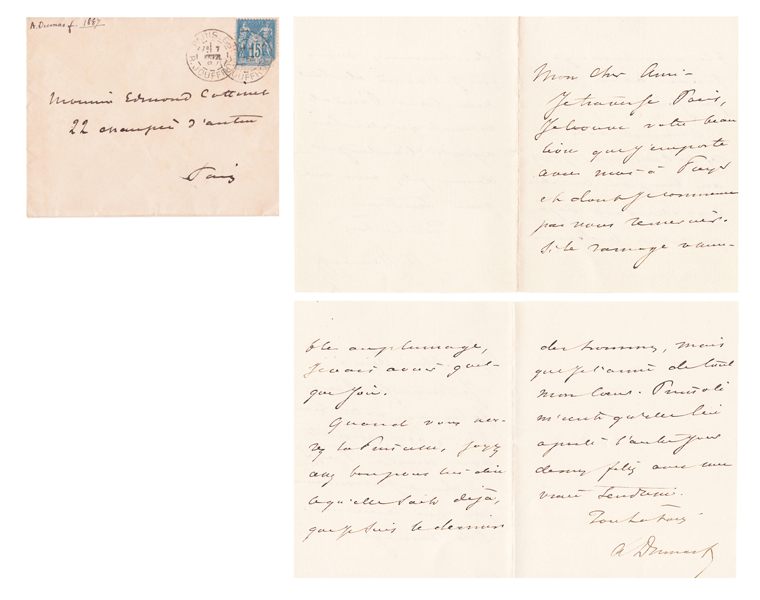 A. Dumas f. 1887
PARIS
15
Monsieur Edmond Cottinet
22 chaussée d'antin
Paris
Mon cher Ami-
Je traverse Paris,
Je trouve votre beau
que j'emporte
avec moi à Puys
et dont je commence
par vous remercier.
Si le ramage ressem-
ble au plumage,
je vais avoir quel-
que joie.
Quand vous ver-
rez la soyez
assez bon pour lui dire
ce qu'elle sait déjà,
que je suis le dernier
des hommes, mais
que je l'aime de tout
mon cœur.
m'écrit qu'elle lui
a parlé l'autre jour
de mes filles avec une
vraie tendresse.
Tout à vous
A Dumas f